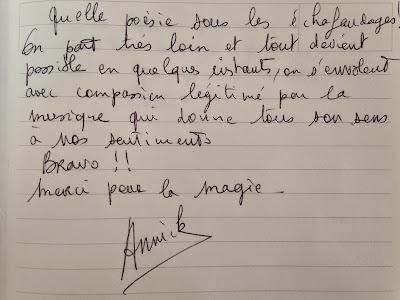 Quelle poësie sous les échafaudages!
On part très loin et tout devient
possible en quelques instants, on s'envolent
avec compassion légitimé par la
musique qui donne tous son sens
à nos sentiments
Bravo !!
Merci pour la magie -
Annick